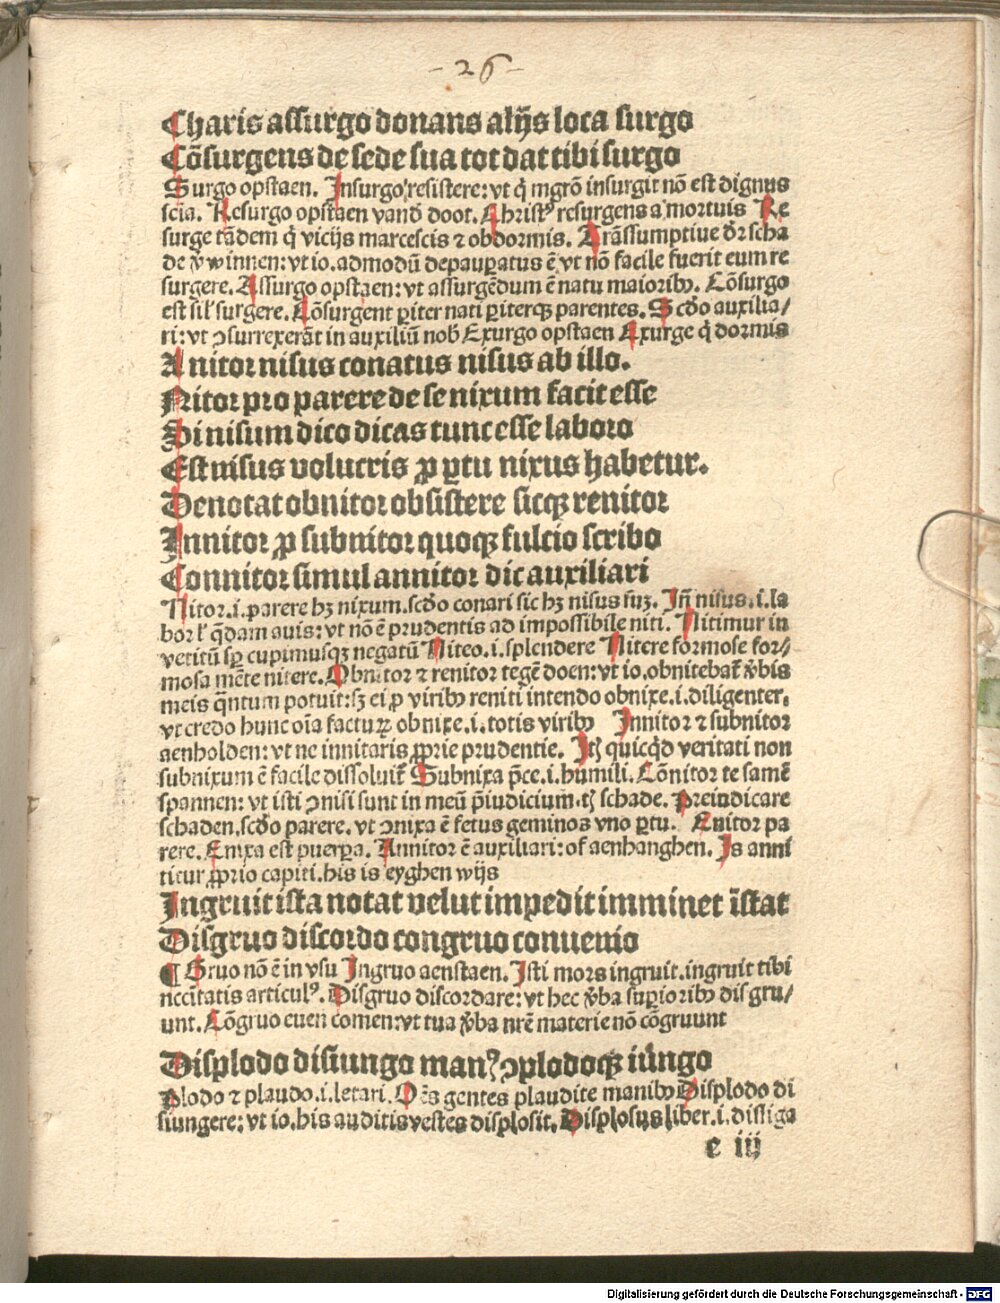 -26-
Charis assurgo donans alijs loca surgo
Cōsurgens de sede sua tot dat tibi surgo
Surgo opstaen. Insurgo resistere: vt q̇ mgrō insurgit nō est dignus
scīa. Resurgo opstaen vand̄ doot. Christꝰ resurgens a mortuis Re
surge tādem q̇ vicijs marcescis ⁊ obdormis. Trāssumptiue d̄r scha
de v̇winnen: vt io. admodū depauꝑatus ē vt nō facile fuerit eum re
surgere. Assurgo opstaen: vt assurgēdum ē natu maioribꝫ. Cōsurgo
est sil̄ surgere. Cōsurgent ꝑiter nati ꝑiterqꝫ parentes. Scd̄o auxilia/
ri: vt ↄsurrexerāt in auxiliū nob̄ Exurgo opstaen Exurge q̇ dormis
Anitor nisus conatus nisus ab illo.
Nitor pro parere de se nixum facit esse
Di nisum dico dicas tunc esse laboro
Est nisus volucris ꝓ ꝑtu nixus habetur.
Denotat obnitor obsistere sicqꝫ renitor
Innitor ꝓ subnitor quoqꝫ fulcio scribo
Connitor simul annitor dic auxiliari
Nitor.i.parere hꝫ nixum.scd̄o conari sic hꝫ nisus suꝫ. Iñ nisus.i.la
bor l̄ q̄dam auis: vt nō ē prudentis ad impossibile niti. Nitimur in
vetitū sꝑ cupimusqꝫ negatū Niteo.i.splendere Nitere formose for/
mosa mēte nitere. Obnitor ⁊ renitor tegē doen: vt io.obnitebat̄ v̇bis
meis q̄ntum potuit: sꝫ ei ꝓ viribꝫ reniti intendo obnixe.i.diligenter.
vt credo hunc oīa facturꝝ obnixe.i.totis viribꝫ Innitor ⁊ subnitor
aenholden: vt ne innitaris ꝓprie prudentie. Itꝫ quicq̇d veritati non
subnixum ē facile dissoluit̄ Subnixa p̄ce.i.humili. Cōnitor te samē
spannen: vt isti ↄnisi sunt in meū p̄iudicium.tꝫ schade. Preiudicare
schaden.scd̄o parere. vt ↄnixa ē fetus geminos vno ꝑtu. Enitor pa
rere. Enixa est puerꝑa. Annitor ē auxiliari: of aenhanghen. Is anni
titur ꝓprio capiti. his is eyghen wijs
Ingruit ista notat velut impedit imminet īstat
Disgruo discordo congruo conuenio
¶ Gruo nō ē in vsu Ingruo aenstaen. Isti mors ingruit. ingruit tibi
nccītatis articulꝰ. Disgruo discordare: vt hec v̇ba suꝑioribꝫ disgru/
unt. Cōgruo euen comen: vt tua v̇ba nr̄e materie nō cōgruunt
Displodo disiungo manꝰ? ↄplodoqꝫ iūngo
Plodo ⁊ plaudo.i.letari. Oēs gentes plaudite manibꝫ Displodo di
siungere: vt io.his auditis vestes displosit. Displosus liber.i.disliga
e iij
Digitalisierung gefördert durch die Deutsche Forschungsgemeinschaft - DFG